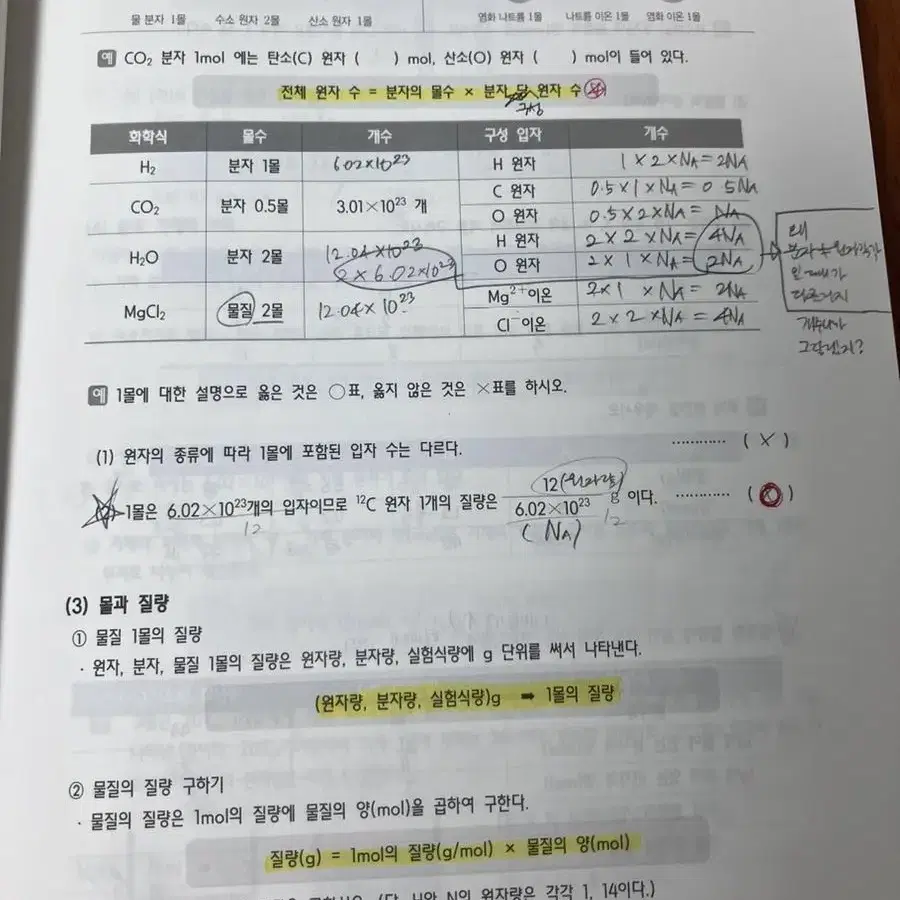 물 분자 1몰 수소 원자 2몰 산소 원자 1몰 염화 나트륨 1몰 나트륨 이온 1몰 염화 이온 1몰
예 CO₂ 분자 1mol 에는 탄소(C) 원자 ( ) mol, 산소(O) 원자 ( ) mol이 들어 있다.
전체 원자 수 = 분자의 몰수 × 분자 당 원자 수
구성
화학식 몰수 개수 구성 입자 개수
H₂ 분자 1몰 6.02×10²³ H 원자 1×2×NA=2NA
CO₂ 분자 0.5몰 3.01×10²³ 개 C 원자 0.5×1×NA=0.5NA
O 원자 0.5×2×NA=NA
H₂O 분자 2몰 12.04×10²³ H 원자 2×2×NA=4NA
2×6.02×10²³ O 원자 2×1×NA=2NA
MgCl₂ 물질 2몰 12.04×10²³ Mg²⁺이온 2×1×NA=2NA
Cl⁻이온 2×2×NA=4NA
왜
다른거지
개수가
예 1몰에 대한 설명으로 옳은 것은 ○표, 옳지 않은 것은 ×표를 하시오.
(1) 원자의 종류에 따라 1몰에 포함된 입자 수는 다르다. ............ ( × )
1몰은 6.02×10²³개의 입자이므로 ¹²C 원자 1개의 질량은 12(원자량)/6.02×10²³ g 이다. ............ ( O )
12 (NA) 12
(3) 몰과 질량
① 물질 1몰의 질량
· 원자, 분자, 물질 1몰의 질량은 원자량, 분자량, 실험식량에 g 단위를 써서 나타낸다.
(원자량, 분자량, 실험식량)g ➡ 1몰의 질량
② 물질의 질량 구하기
· 물질의 질량은 1mol의 질량에 물질의 양(mol)을 곱하여 구한다.
질량(g) = 1mol의 질량(g/mol) × 물질의 양(mol)
(단, H와 N의 원자량은 각각 1, 14이다.)